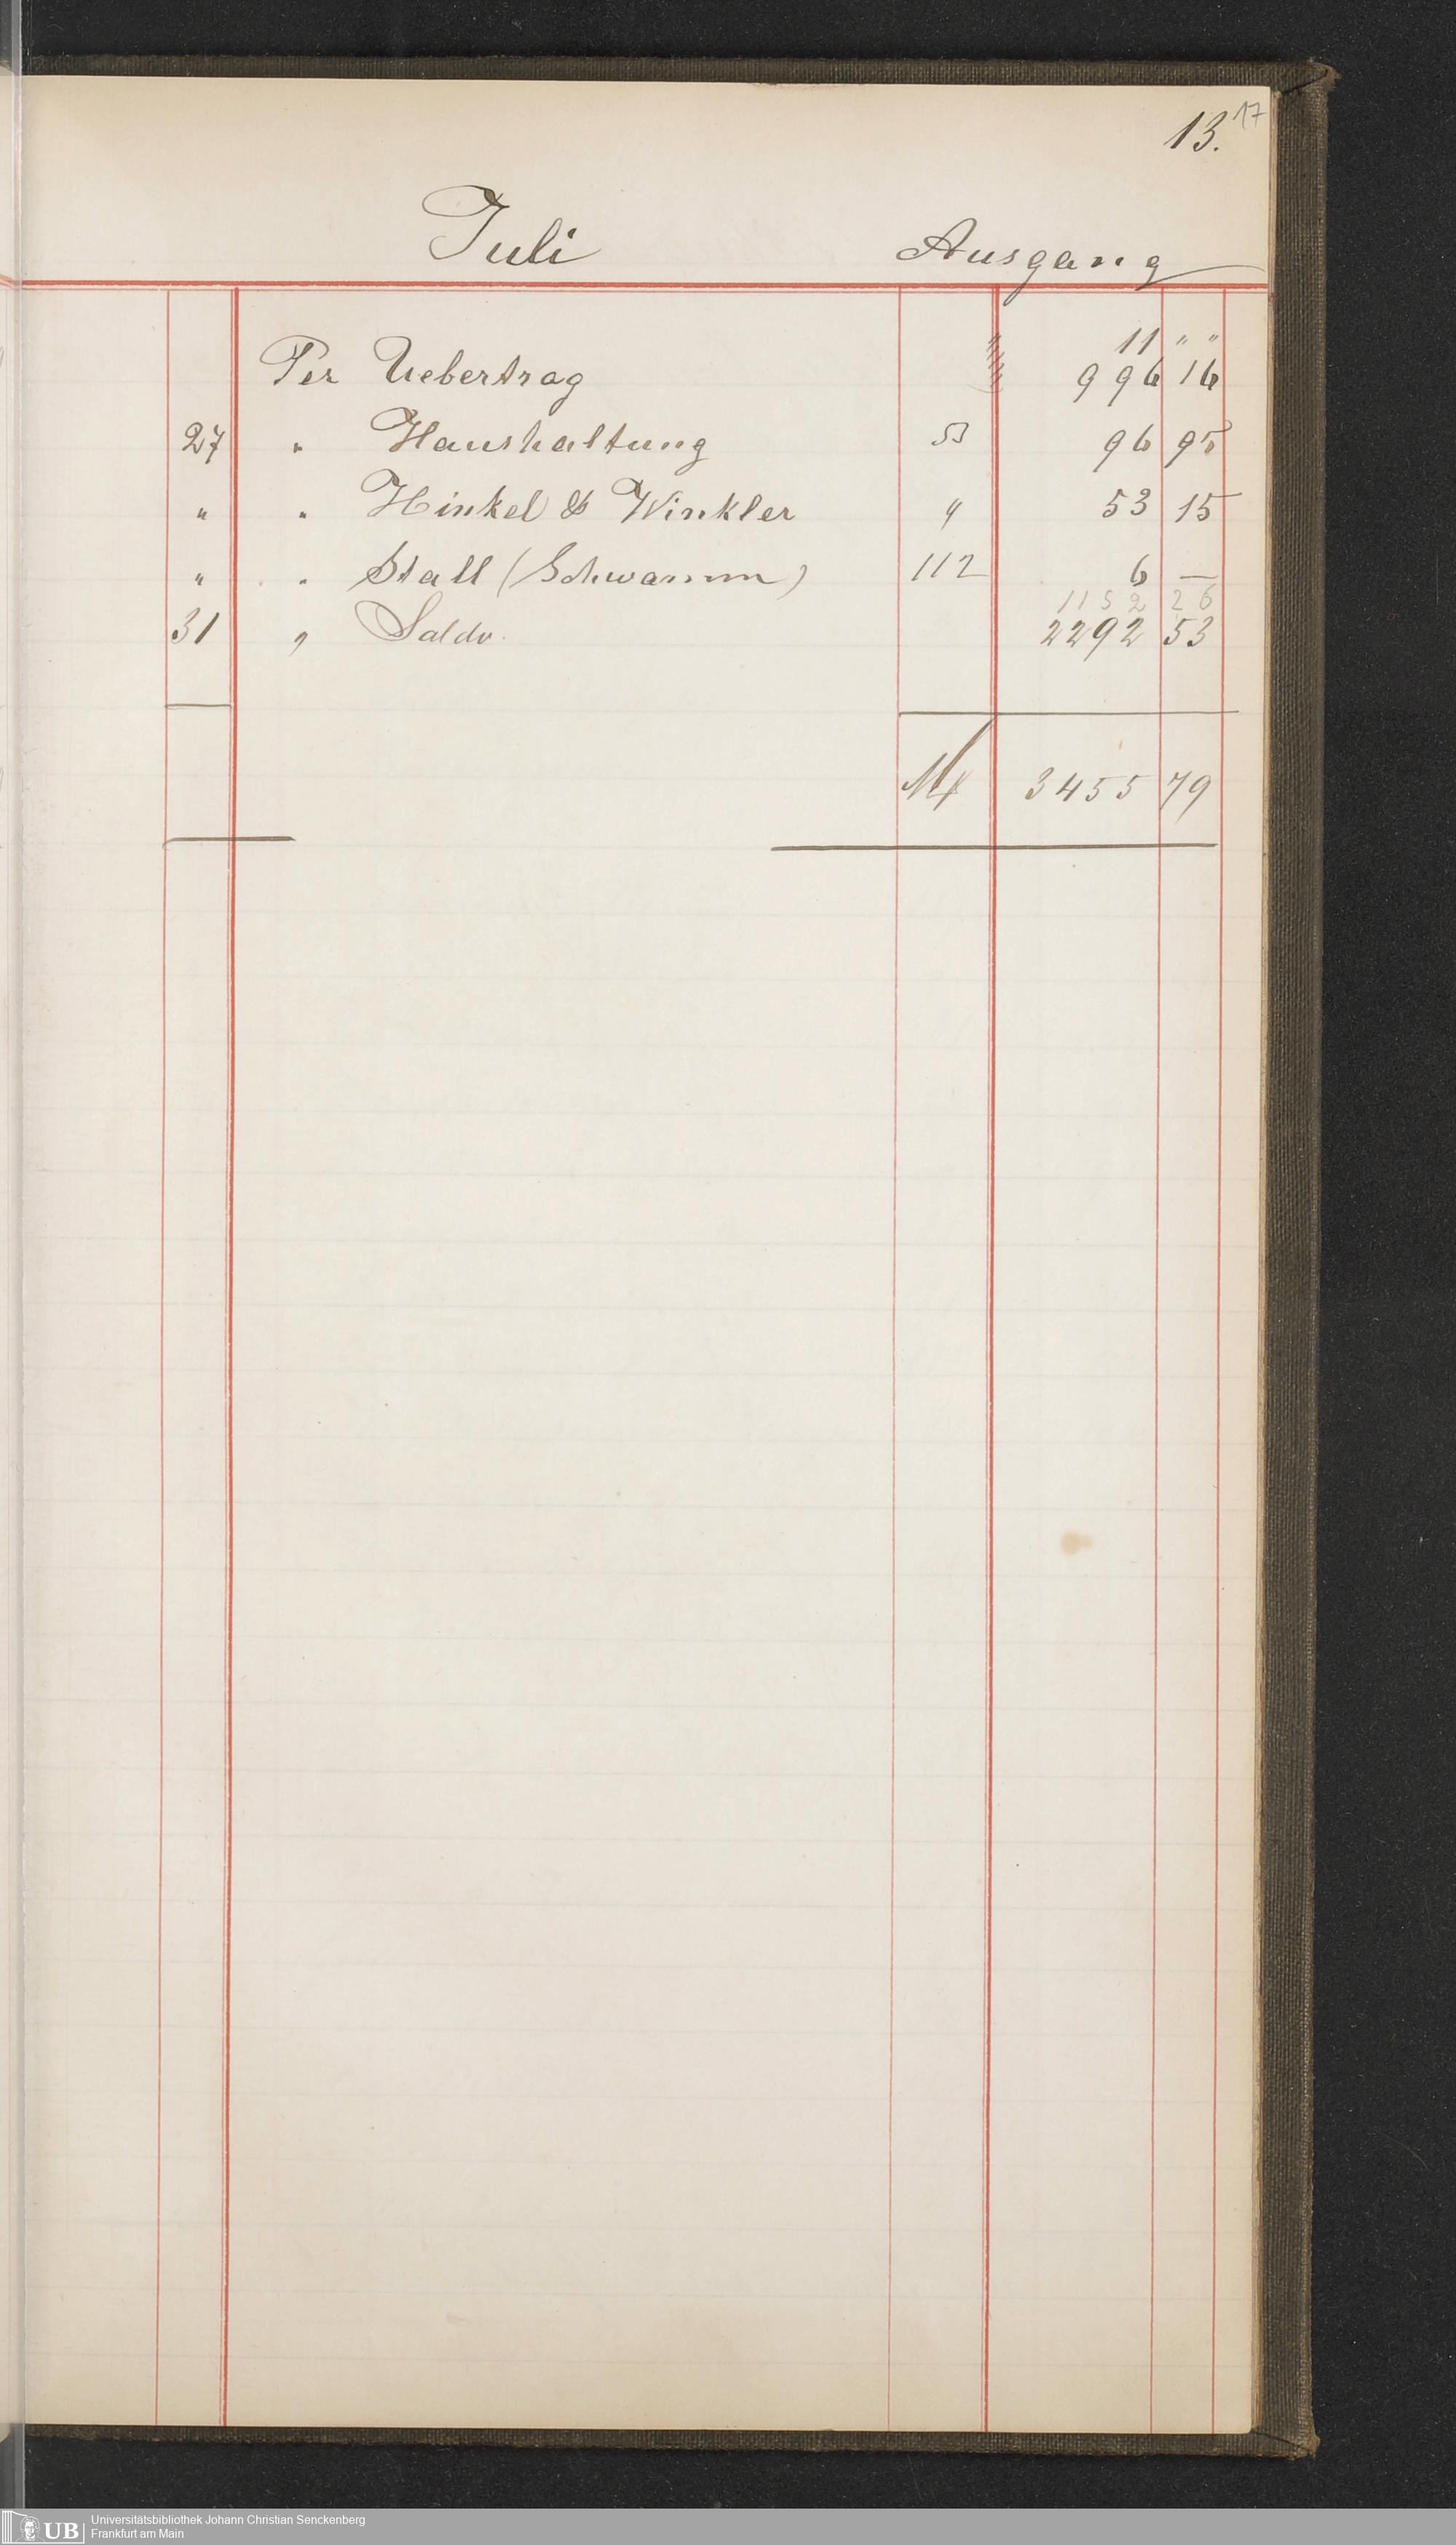 13. 17
Juli Ausgang
11 " "
Per Uebertrag 996 16
27 " Haushaltung 53 96 95
" " Hinkel & Winkler 4 53 15
" " Stall (Schwamm) 112 6 —
1152 26
31 " Saldo 2292 53
M 3455 79
UB Universitätsbibliothek Johann Christian Senckenberg
Frankfurt am Main